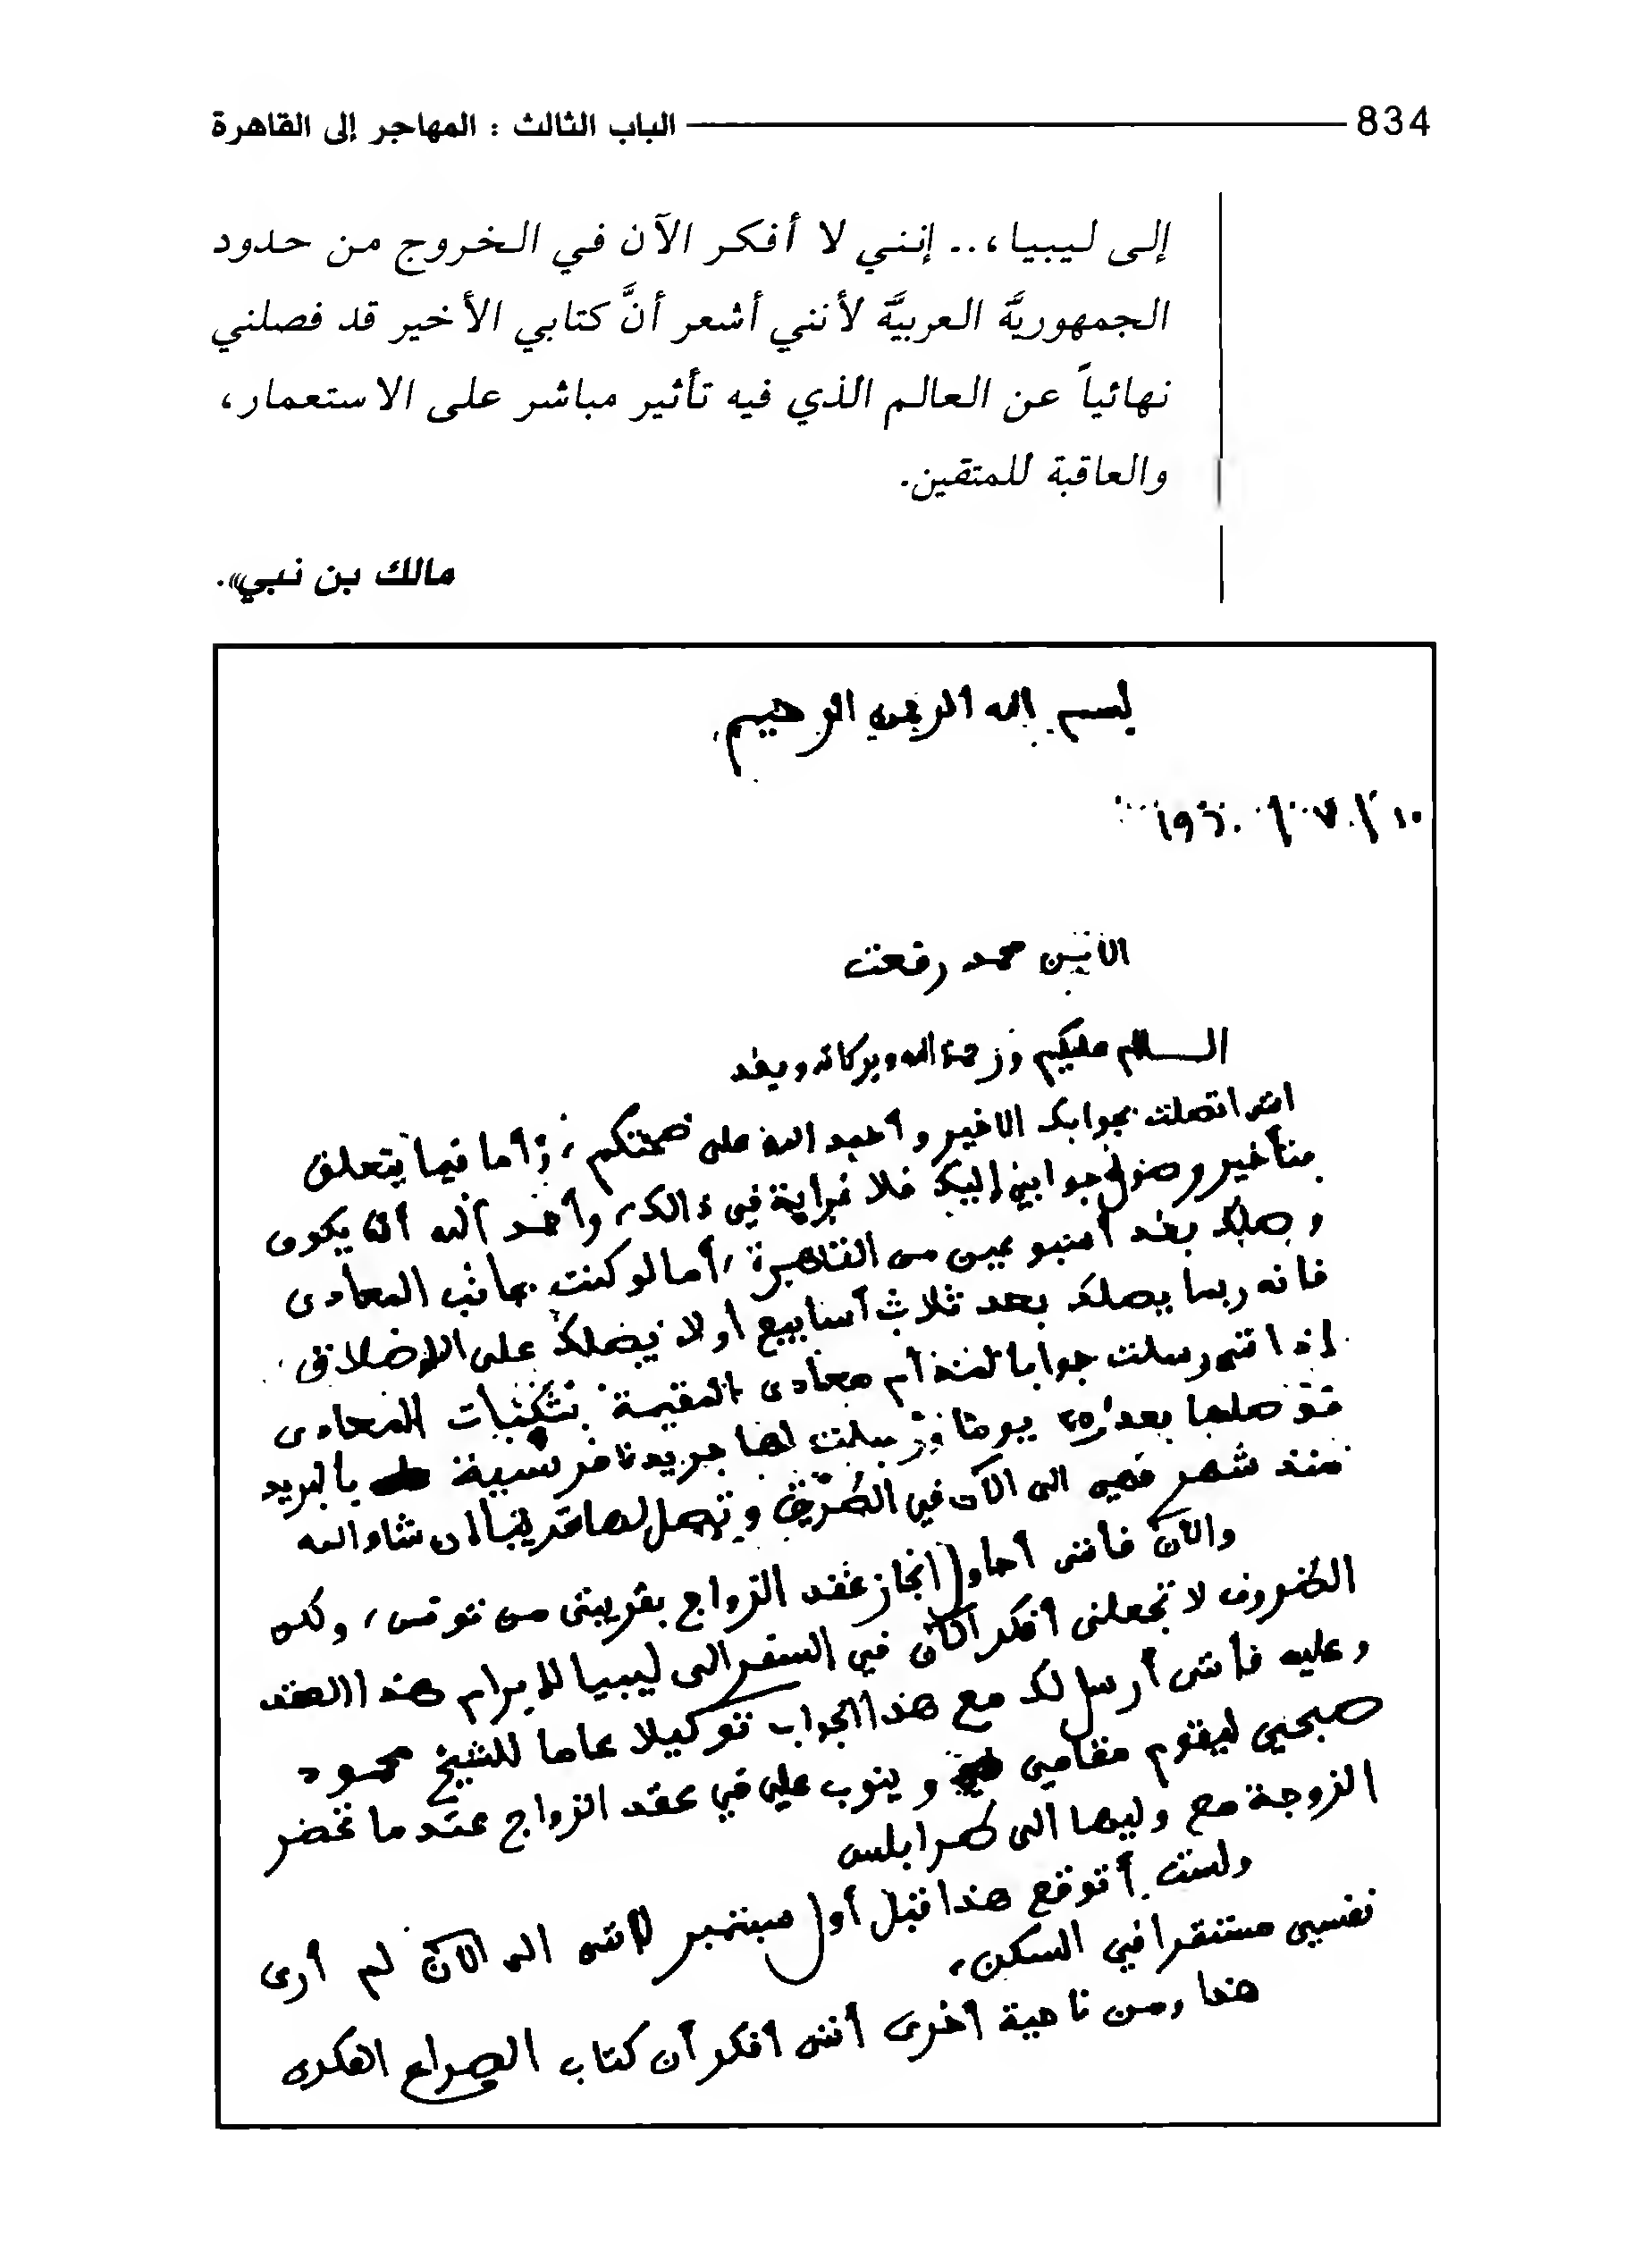 834 الباب الثالث : المهاجر إلى القاهرة
إلى ليبيا،.. إنني لا أفكر الآن في الخروج من حدود
الجمهوريَّة العربيَّة لأنني أشعر أنَّ كتابي الأخير قد فصلني
نهائياً عن العالم الذي فيه تأثير مباشر على الاستعمار،
والعاقبة للمتقين.
مالك بن نبي».
بسم الله الرحمن الرحيم
١٠ / ٧ / ١٩٦٠
محمد رفعت
السلام عليكم ورحمة الله وبركاته وبعد
اتصلت بجوابك الاخير و أحمد الله على صحتكم ، وأما فيما يتعلق
بتأخير وصول جوابي إليك فلا غراية في ذالك، وأحمد الله أن يكون
وصلك بعد أسبوعين من القاهرة ، أما لو كنت بجانب المعادى
فانه ربما يصلك بعد ثلاث أسابيع أو لا يصلك على الإطلاق .
رسلت جوابا معادى المقيمة بثكنات المعادى
بعد ٢٥ يوما ورسلت لها جريدة فرنسية بالبريد
منذ شهر فهي الى الآن في الطريق و تصل لها قريبا ان شاء الله
والآن فانني أحاول انجاز عقد الزواج بقريبتي من تونس ، ولكن
الظروف لا تجعلني أفكر الآن في السفر الى ليبيا لإبرام هذا العقد
وعليه فأنني أرسل لك مع هذا الجواب توكيلا عاما للشيخ محمود
صبحي ليقوم مقامي و ينوب علي في عقد الزواج عندما تحضر
الزوجة مع وليها الى طرابلس
ولست أتوقع هذا قبل أول سبتمبر لانني الى الآن لم أرى
نفسي مستقرا في السكن.
هذا ومن ناحية أخرى أنني افكر أن كتاب الصراع الفكري